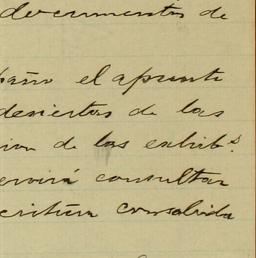 documentos de
paño el apunte
desiertas de las
ion de las exhib.s
ervirá consultar
critura consolvida